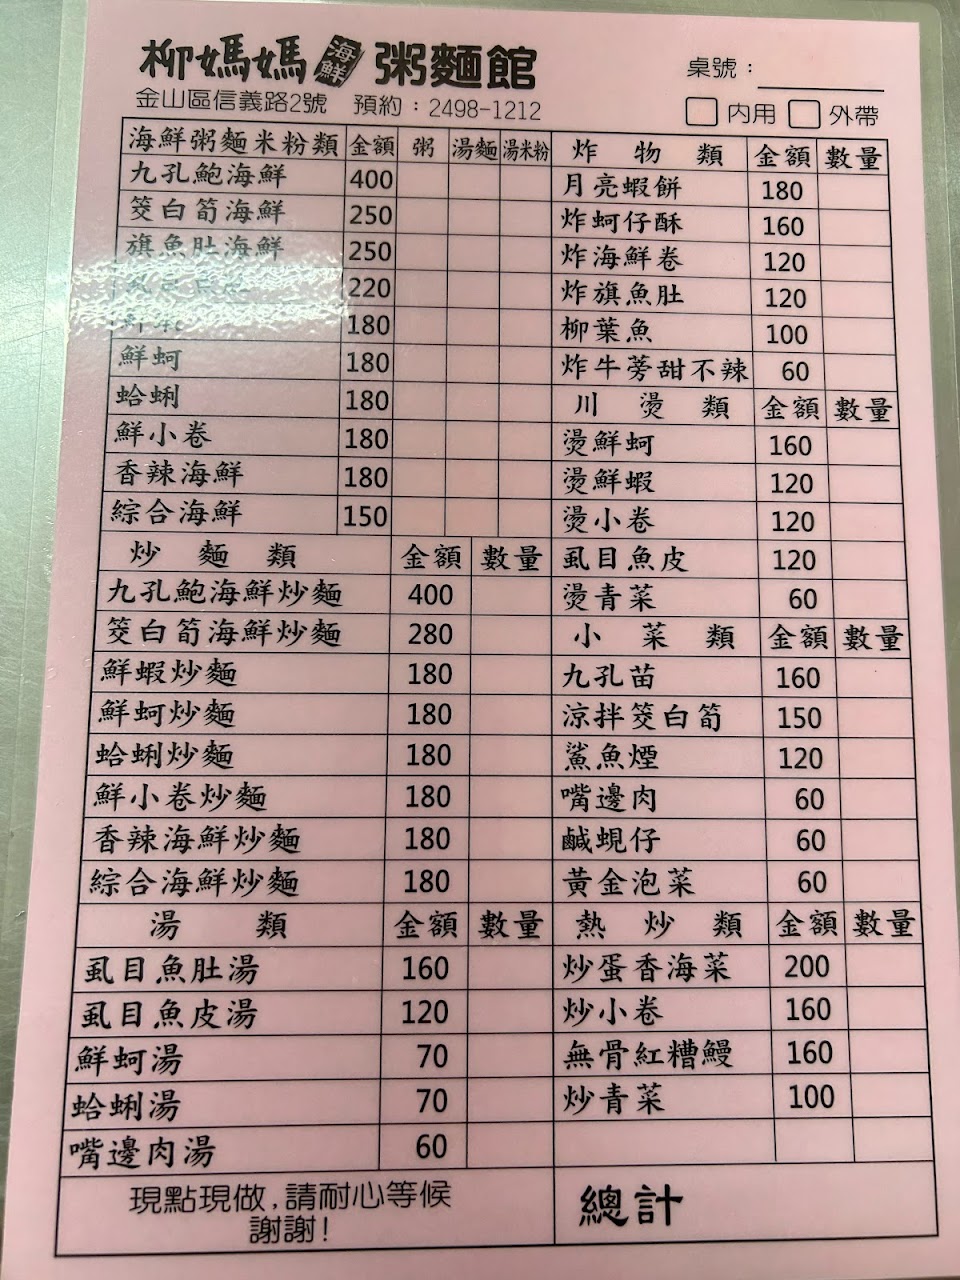 柳媽媽海鮮粥麵館
金山區信義路2號 預約：2498-1212
桌號：
內用 外帶
海鮮粥麵米粉類 金額 粥 湯麵 湯米粉
九孔鮑海鮮 400
筊白筍海鮮 250
旗魚肚海鮮 250
220
180
鮮蚵 180
蛤蜊 180
鮮小卷 180
香辣海鮮 180
綜合海鮮 150
炒麵類 金額 數量
九孔鮑海鮮炒麵 400
筊白筍海鮮炒麵 280
鮮蝦炒麵 180
鮮蚵炒麵 180
蛤蜊炒麵 180
鮮小卷炒麵 180
香辣海鮮炒麵 180
綜合海鮮炒麵 180
湯類 金額 數量
虱目魚肚湯 160
虱目魚皮湯 120
鮮蚵湯 70
蛤蜊湯 70
嘴邊肉湯 60
現點現做,請耐心等候
謝謝!
炸物類 金額 數量
月亮蝦餅 180
炸蚵仔酥 160
炸海鮮卷 120
炸旗魚肚 120
柳葉魚 100
炸牛蒡甜不辣 60
川燙類 金額 數量
燙鮮蚵 160
燙鮮蝦 120
燙小卷 120
虱目魚皮 120
燙青菜 60
小菜類 金額 數量
九孔苗 160
涼拌筊白筍 150
鯊魚煙 120
嘴邊肉 60
鹹蜆仔 60
黃金泡菜 60
熱炒類 金額 數量
炒蛋香海菜 200
炒小卷 160
無骨紅糟鰻 160
炒青菜 100
總計